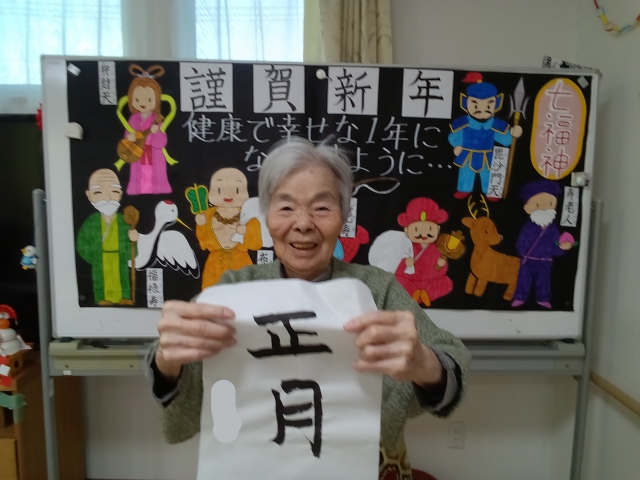 謹賀新年
健康で幸せな1年に
な ように…
七福神
弁財天
毘沙門天
寿老人
福禄寿
布
正月